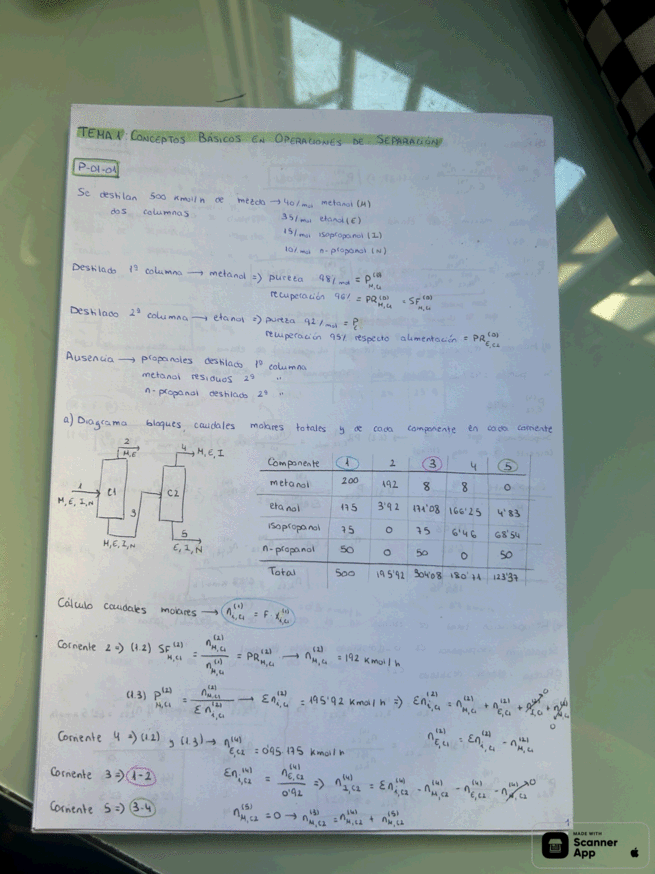 TEMA 1 CONCEPTOS BÁSICOS EN OPERACIONES DE SEPARACIÓN
P-01-01
Se destilan 500 Kmol/h de mezcla → 40%mol metanol (M)
dos columnas 35%mol etanol (E)
15%mol isopropanol (I)
10%mol n-propanol (N)
Destilado 1ª columna → metanol => pureza 98%mol = P_{M,C1}^{(2)}
recuperación 96% = PR_{M,C1}^{(2)} = SF_{M,C1}^{(2)}
Destilado 2ª columna → etanol => pureza 92%mol = P_E
recuperación 95% respecto alimentación = PR_{E,C2}
Ausencia → propanoles destilado 1ª columna
metanol residuos 2ª "
n-propanol destilado 2ª "
a) Diagrama bloques, caudales molares totales y de cada componente en cada corriente
2
M,E
4 M,E,I
1
M,E,I,N
C1
3
C2
M,E,I,N
5
E,I,N
Componente 1 2 3 4 5
metanol 200 192 8 8 0
etanol 175 3'92 171'08 166'25 4'83
isopropanol 75 0 75 6'46 68'54
n-propanol 50 0 50 0 50
Total 500 195'92 304'08 180'71 123'37
Cálculo caudales molares → n_{i,C1}^{(1)} = F · x_{i,C1}^{(1)}
Corriente 2 => (1.2) SF_{M,C1}^{(2)} = n_{M,C1}^{(2)} / n_{M,C1}^{(1)} = PR_{M,C1}^{(2)} → n_{M,C1}^{(2)} = 192 Kmol/h
(1.3) P_{M,C1}^{(2)} = n_{M,C1}^{(2)} / Σn_{i,C1}^{(2)} → Σn_{i,C1}^{(2)} = 195'92 Kmol/h => Σn_{i,C1}^{(2)} = n_{M,C1}^{(2)} + n_{E,C1}^{(2)} +
n_{E,C1}^{(2)} = Σn_{i,C1}^{(2)} - n_{M,C1}^{(2)}
Corriente 4 => (1.2) y (1.3) → n_{E,C2}^{(4)} = 0'95·175 Kmol/h
Corriente 3 => 1-2 Σn_{i,C2}^{(4)} = n_{E,C2}^{(4)} / 0'92 => n_{I,C2}^{(4)} = Σn_{i,C2}^{(4)} - n_{M,C2}^{(4)} - n_{E,C2}^{(4)} - n_{N,C2}^{(4)} 0
Corriente 5 => 3-4 n_{M,C2}^{(5)} = 0 → n_{M,C2}^{(3)} = n_{M,C2}^{(4)} + n_{M,C2}^{(5)}
1
MADE WITH
Scanner
App